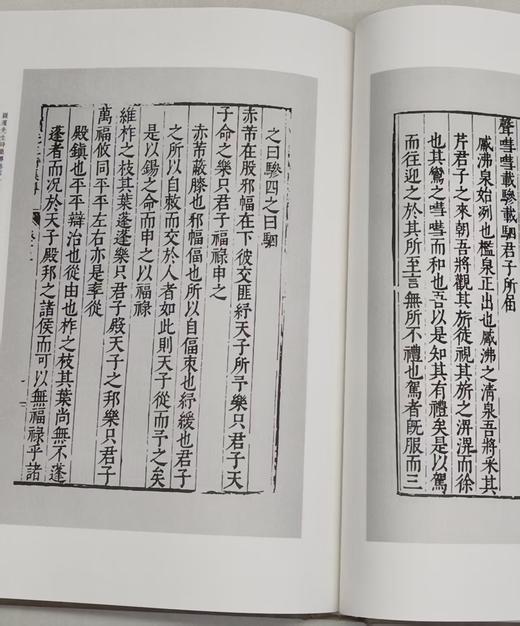 聲嘒嘒載驂載駟君子所屆
觱沸泉始洌也檻泉正出也觱沸之清泉吾將采其
芹君子之來朝吾將觀其旂從視其旂之淠淠而徐
也其鸞之嘒嘒而和也吾以是知其有禮矣是以駕
而往迎之於其所至言無所不禮也駕者旣服而三
之曰驂四之曰駟
赤芾在股邪幅在下彼交匪紓天子所予樂只君子天
子命之樂只君子福祿申之
赤芾蔽膝也邪幅偪也所以自偪束也紓緩也君子
之所以自敕而交於人者如此則天子從而予之矣
是以錫之命而申之以福祿
維柞之枝其葉蓬蓬樂只君子殿天子之邦樂只君子
萬福攸同平平左右亦是率從
殿鎮也平平辯治也從由也柞之枝其葉尚無不蓬
蓬者而况於天子殿邦之諸侯而可以無福祿乎諸
潁濱先生詩集傳卷